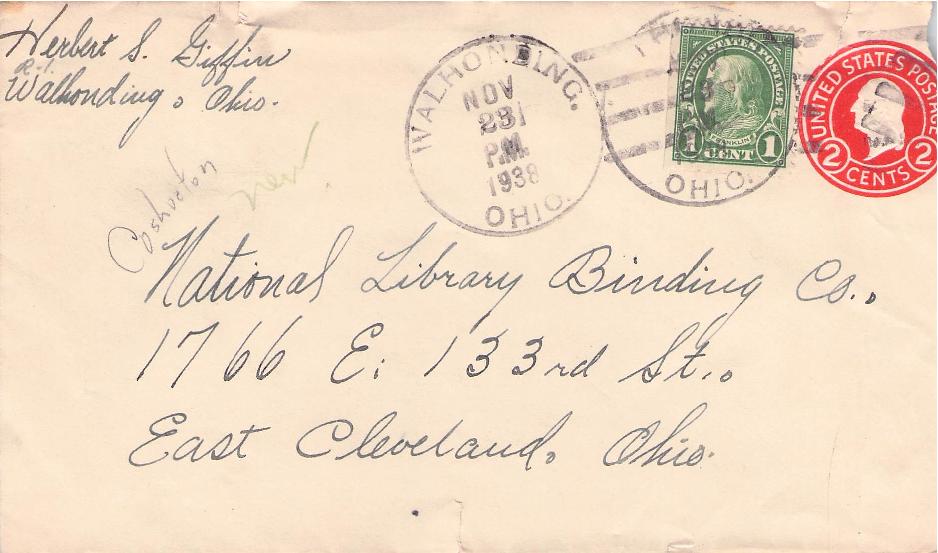 Herbert S. Giffin
R.1.
Walhonding, Ohio.
WALHONDING.
NOV
231
P.M.
1938
OHIO.
OHIO.
UNITED STATES POSTAGE
FRANKLIN
1 CENT 1
UNITED STATES POSTAGE
2 CENTS 2
Coshocton
new
National Library Binding Co.,
1766 E. 133rd St.,
East Cleveland, Ohio.